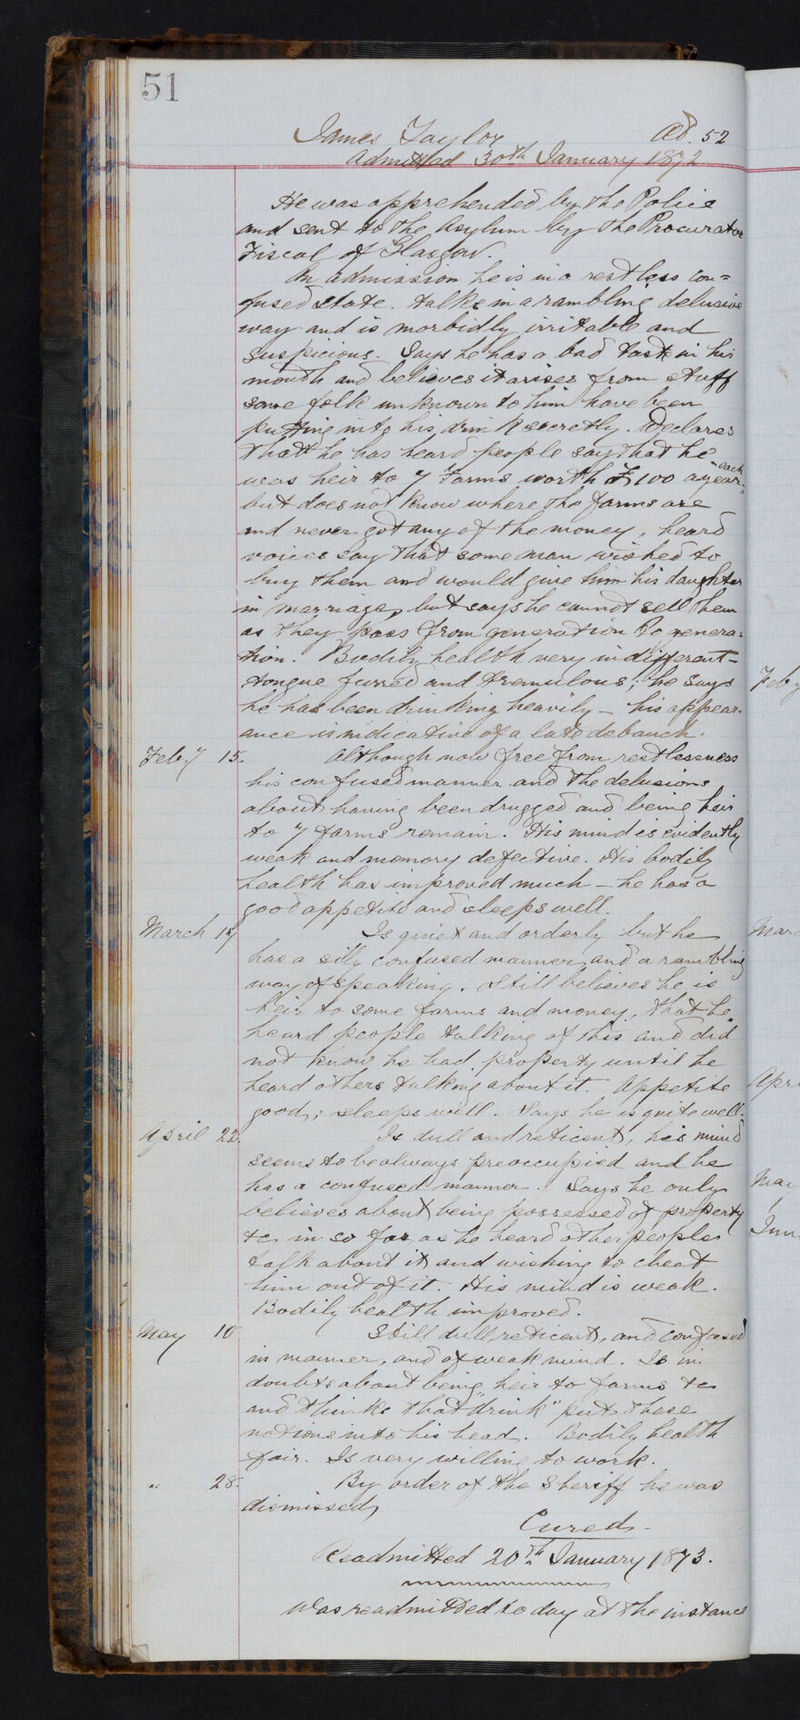 51
James Taylor Æt. 52
Admitted 30th January 1872.
He was apprehended by the Police
and sent to the Asylum by the Procurator
Fiscal of Glasgow.
On admission he is in a restless con=
fused state. talks in a rambling delusive
way and is morbidly irritable and
suspicious. Says he has a bad taste in his
mouth and believes it arises from stuff
some folk unknown to him have been
putting into his drink secretly. Declares
that he has heard people say that he
was heir to 7 Farms worth £100 a year each
but does not know where the farms are
and never got any of the money, heard
voices say that some man wished to
buy them and would give him his daughter
in marriage, but says he cannot sell them
as they pass from generation to genera=
tion. Bodily health very indifferent -
tongue furred and tremulous; he says
he has been drinking heavily - his appear-
ance is indicative of a late debauch.
Feby 15. Although now free from restlessness
his confused manner and the delusions
about having been drugged and being heir
to 7 farms remain. His mind is evidently
weak and memory defective. His bodily
health has improved much - he has a
good appetite and sleeps well.
March Is quiet and orderly but he
has a silly confused manner and a rambling
way of speaking. Still believes he is
heir to some farms and money, that he
heard people talking of this and did
not know he had property until he
heard others talking about it. Appetite
good; sleeps well. Says he is quite well.
April 22. Is dull and reticent, his mind
seems to be always preoccupied and he
has a confused manner. Says he only
believes about being possessed of property
&c in so far as he heard other people
talk about it and wishing to cheat
him out of it. His mind is weak.
Bodily health improved.
May 10 Still dull, reticent, and confused
in manner, and of weak mind. Is in
doubts about being heir to farms &c
and thinks that "drink" put these
notions into his head. Bodily health
fair. Is very willing to work.
" 28. By order of the Sheriff he was
dismissed,
Cured.
Readmitted 20th January 1873.
Was readmitted to day at the instance
Feby
Marc
Apri
May
June